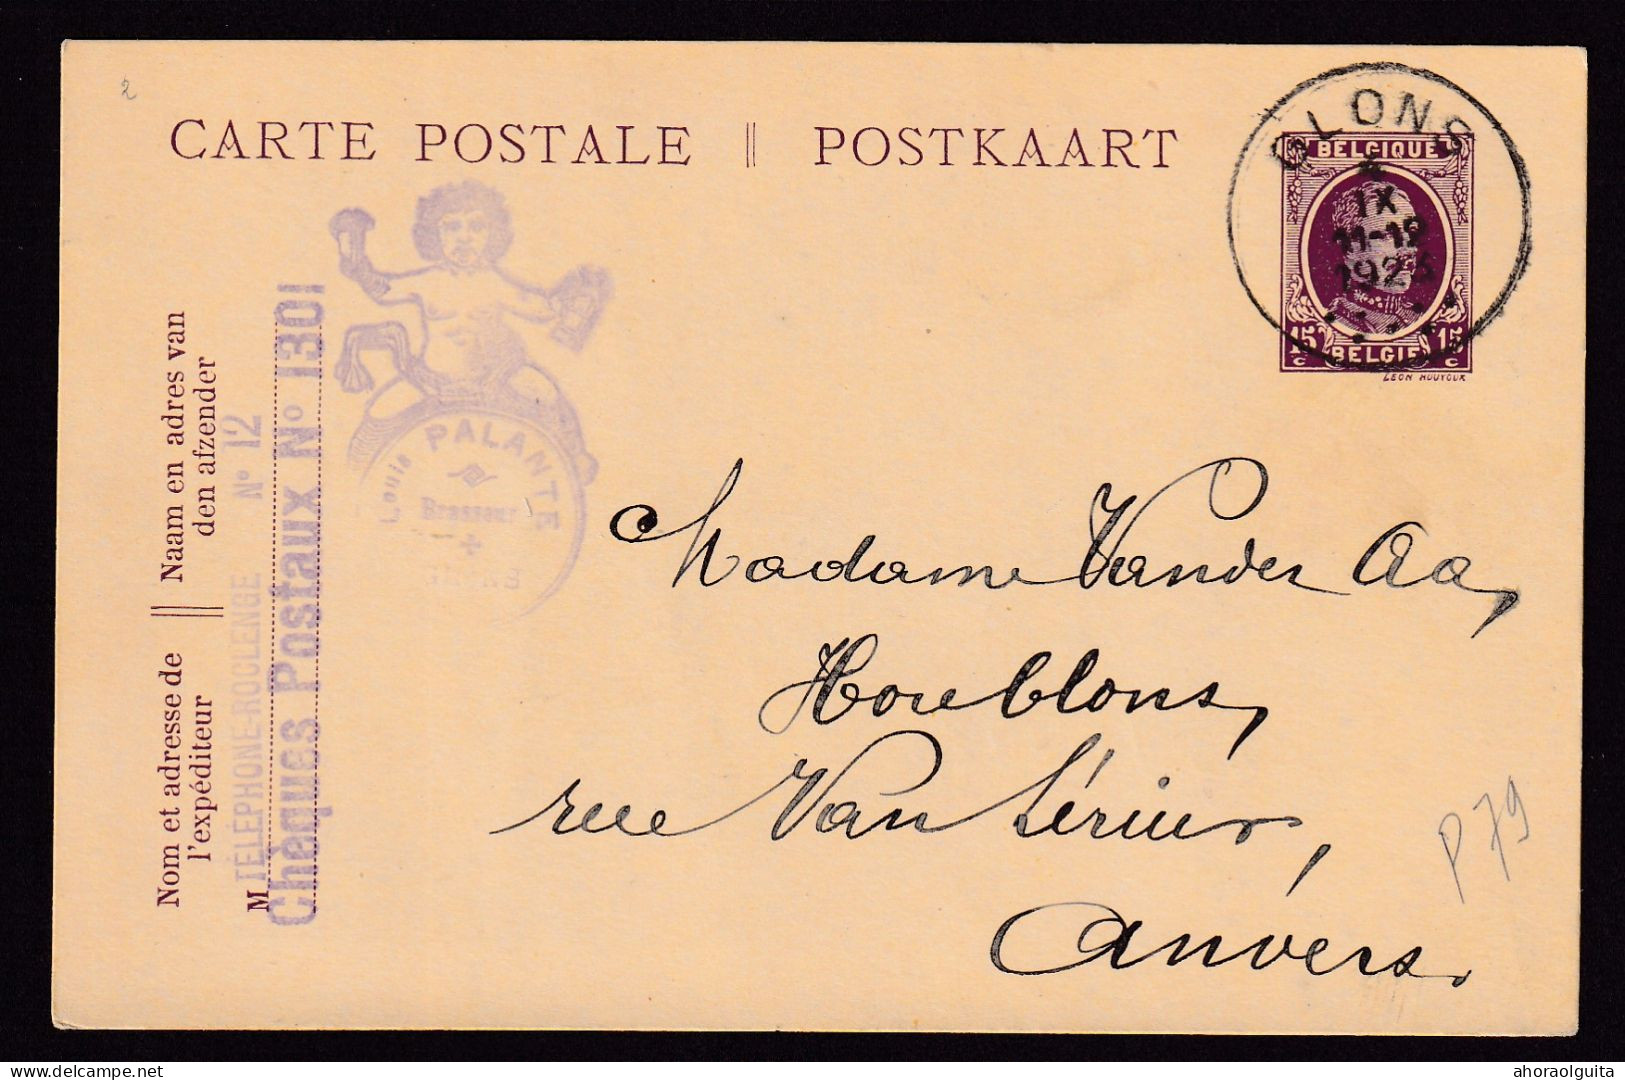 2
CARTE POSTALE || POSTKAART
GLONS
IX
11-12
1923
BELGIQUE
15 c
15 c
BELGIE
LEON HOUYOUX
Naam en adres van
den afzender
Nom et adresse de
l'expéditeur
M
TÉLÉPHONE-ROCLENGE N° 12
Chèques Postaux N° 1301
Louis PALANTE
Brasseur
Madame Vander Aa,
Houblons,
rue Van Lérius,
Anvers.
P79
delcampe.net
ahoraolguita